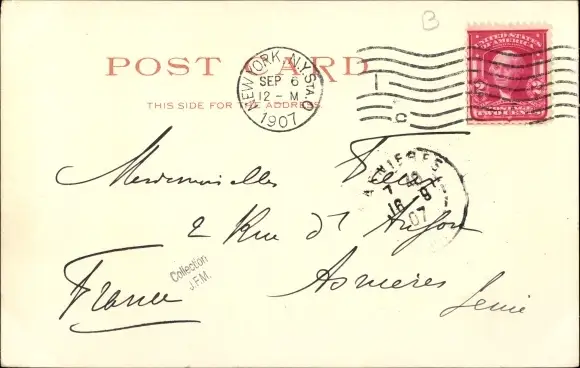 B
POST CARD
THIS SIDE FOR THE ADDRESS
NEW YORK, N.Y. STA. O
SEP 6
12 - M
1907
UNITED STATES
OF AMERICA
2 2
POSTAGE
TWO CENTS
ASNIERES
7
16 - 9
07
Mesdemoiselles
2 Rue d'
Asnieres
Seine
France
Collection
J.F.M.